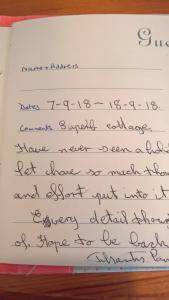 Gue
Name & Address
Dates 7-9-18 — 18-9-18.
Comments Superb cottage,
Have never seen a holi
let have so much thou
and effort put into it
Every detail thou
of. Hope to be back
Thanks